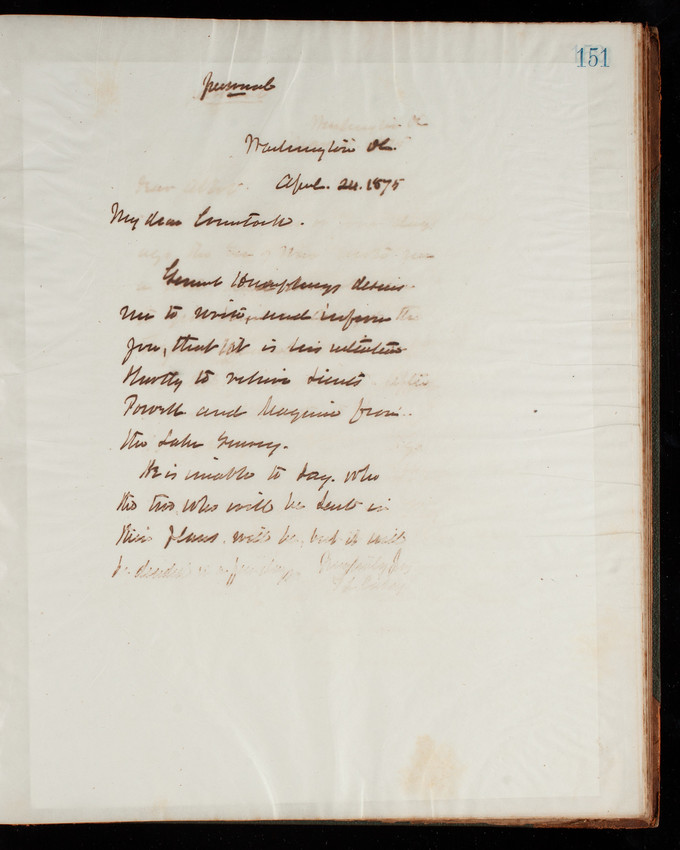 151
personal
Washington DC.
April. 24. 1875
My dear Comstock.
General Humphreys desires
me to write, and inform
you, that it is his intention
shortly to relieve Lieuts
Powell and Maguire from
the Lake Survey.
He is unable to say. who
the two, who will be sent in
their places. will be, but it will
be decided in a few days.